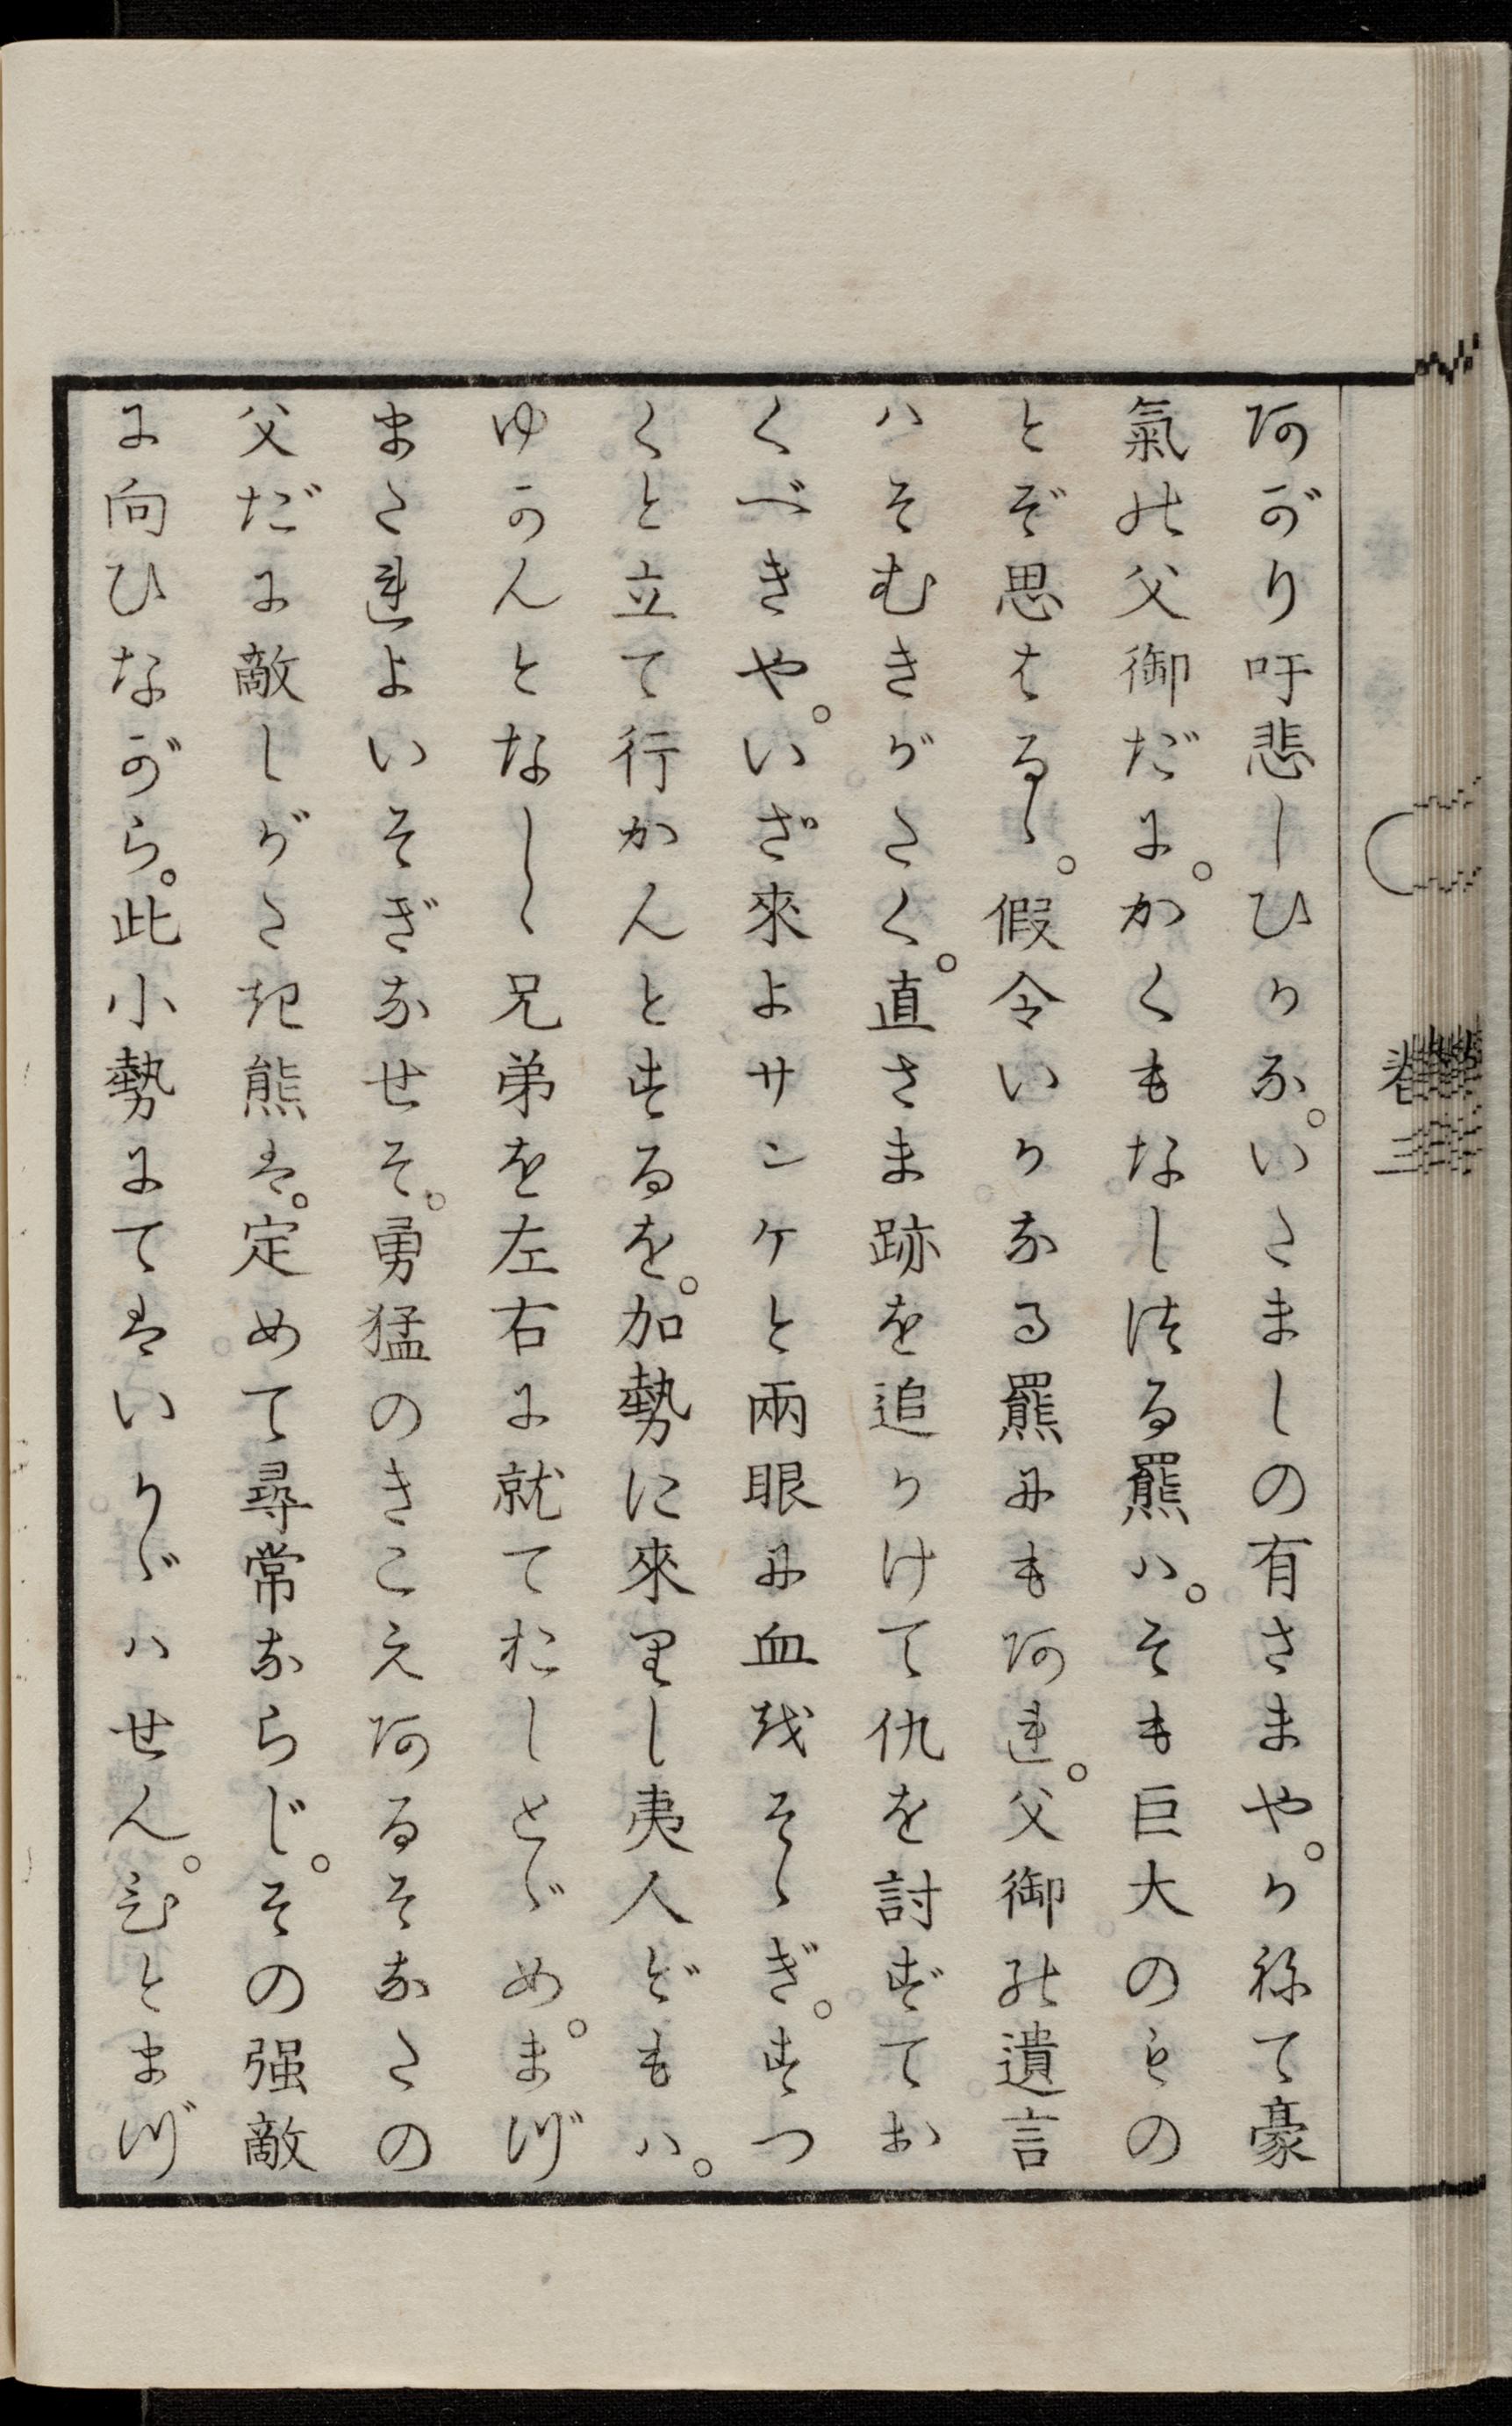 あがり吁悲しひかな。いたましの有さまや。かねて豪
氣の父御だに。かくもなしつる羆ハ。そも巨大のもの
とぞ思はるゝ。假令いかなる羆にもあれ。父御の遺言
ハそむきがたく。直さま跡を追かけて仇を討ずてお
くべきや。いざ來よサンケと兩眼に血をそゝぎ。すつ
くと立て行かんとするを。加勢に來りし夷人どもハ。
ゆかんとなしゝ兄弟を左右に就ておしとゞめ。まづ
またれよいそぎなせそ。勇猛のきこえあるそなたの
父だに敵しがたき熊は。定めて尋常ならじ。その强敵
に向ひながら。此小勢にてはいかゞハせん。ひとまづ